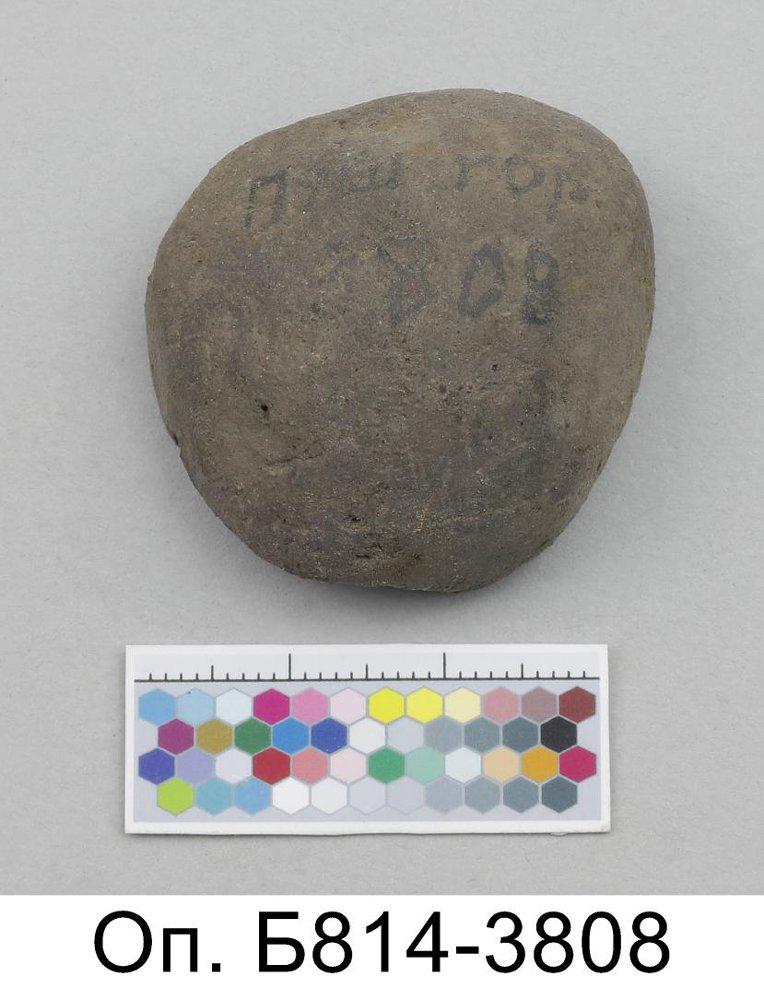 пуш гор
3808
Оп. Б814-3808